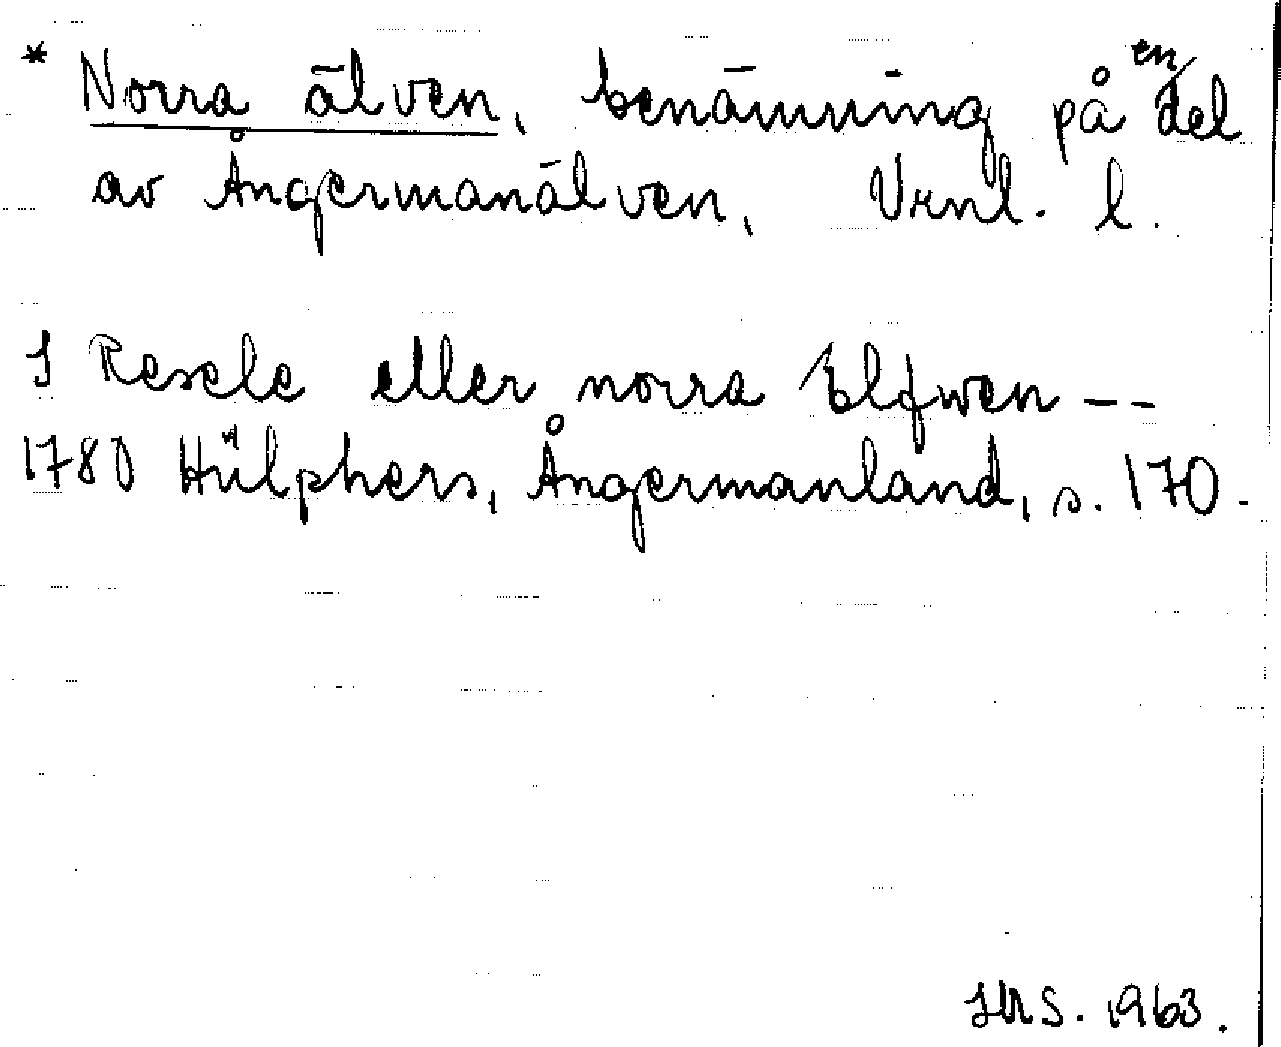 * Norra älven, benämning på en del
av Ångermanälven, Vrnl. l.
I Resele eller norra Elfwen --
1780 Hülphers, Ångermanland, s. 170.
S. 1963.